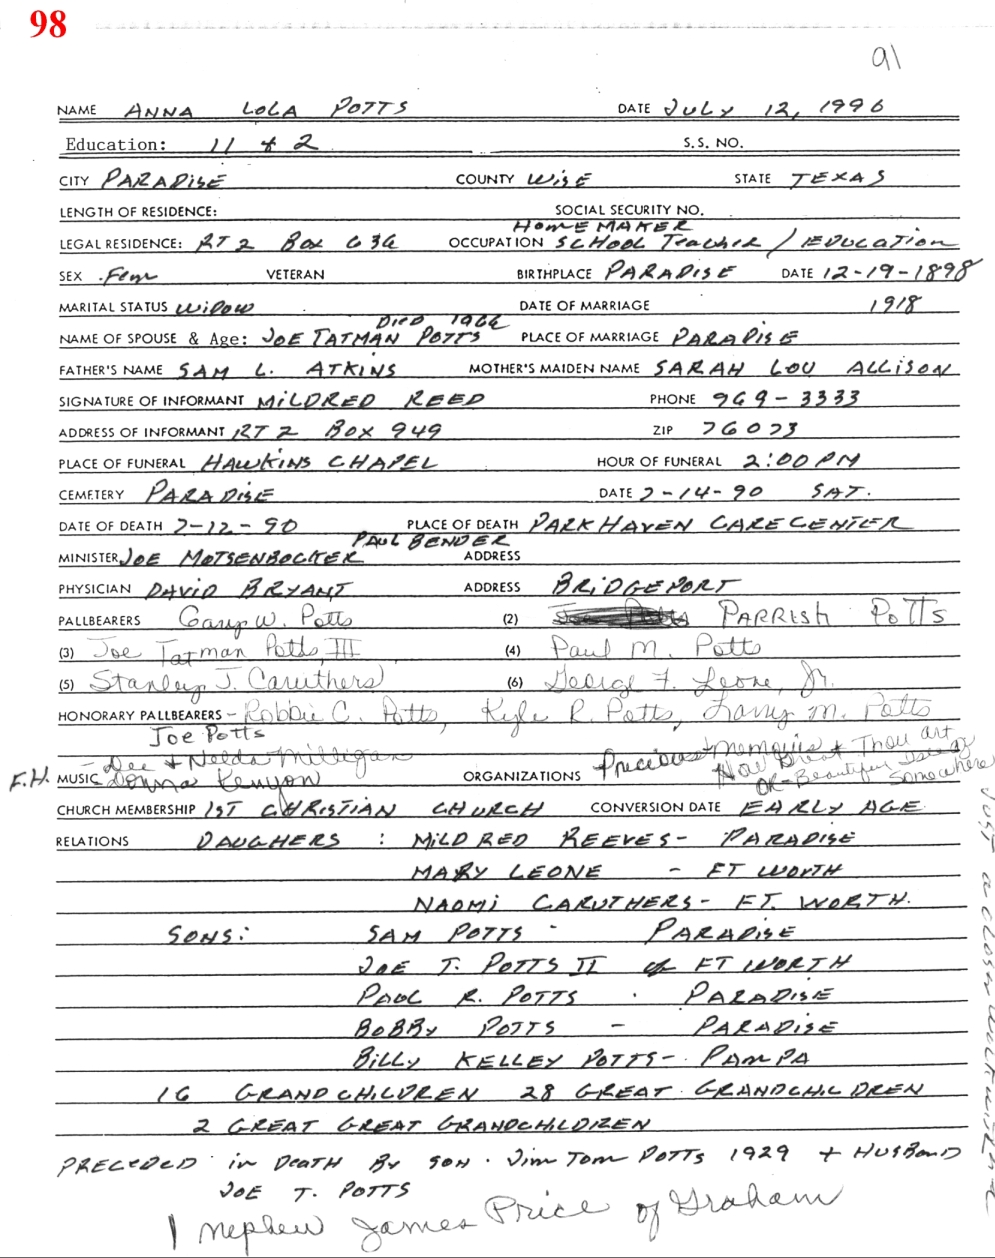 98
91
NAME ANNA LOLA POTTS DATE JULY 12, 1990
Education: 11 + 2 S.S. NO.
CITY PARADISE COUNTY WISE STATE TEXAS
LENGTH OF RESIDENCE: SOCIAL SECURITY NO.
HOMEMAKER
LEGAL RESIDENCE: RT 2 BOX 636 OCCUPATION SCHOOL Teacher / EDUCATION
SEX Fem VETERAN BIRTHPLACE PARADISE DATE 12-19-1898
MARITAL STATUS WIDOW DATE OF MARRIAGE 1918
DIED 1966
NAME OF SPOUSE & Age: JOE TATMAN POTTS PLACE OF MARRIAGE PARADISE
FATHER'S NAME SAM L. ATKINS MOTHER'S MAIDEN NAME SARAH LOU ALLISON
SIGNATURE OF INFORMANT MILDRED REED PHONE 969-3333
ADDRESS OF INFORMANT RT 2 BOX 949 ZIP 76073
PLACE OF FUNERAL HAWKINS CHAPEL HOUR OF FUNERAL 2:00 PM
CEMETERY PARADISE DATE 7-14-90 SAT.
DATE OF DEATH 7-12-90 PLACE OF DEATH PARK HAVEN CARE CENTER
PAUL BENDER
MINISTER JOE MOTSENBOCKER ADDRESS
PHYSICIAN DAVID BRYANT ADDRESS BRIDGEPORT
PALLBEARERS Gary W. Potts (2) PARRISH POTTS
(3) Joe Tatman Potts, III (4) Paul M. Potts
(5) Stanley J. Caruthers (6) George F. Leone, Jr.
HONORARY PALLBEARERS - Robbie C. Potts, Kyle R. Potts, Larry M. Potts
Joe Potts
Dee + Nelda Milligan Precious Memories + Thou art
F.H. MUSIC Donna Kenyon ORGANIZATIONS How Great
OR - Beautiful Isle of Somewhere
JUST a CLOSER WALK
CHURCH MEMBERSHIP 1ST CHRISTIAN CHURCH CONVERSION DATE EARLY AGE
RELATIONS DAUGHERS : MILDRED REEVES - PARADISE
MARY LEONE - FT WORTH
NAOMI CARUTHERS - FT. WORTH.
SONS: SAM POTTS - PARADISE
JOE T. POTTS II of FT WORTH
PAUL R. POTTS . PARADISE
BOBBY POTTS - PARADISE
BILLY KELLEY POTTS - PAMPA
16 GRANDCHILDREN 28 GREAT GRANDCHILDREN
2 GREAT GREAT GRANDCHILDREN
PRECEDED in DEATH BY SON . Jim Tom POTTS 1929 + HUSBAND
JOE T. POTTS
1 nephew James Price of Graham